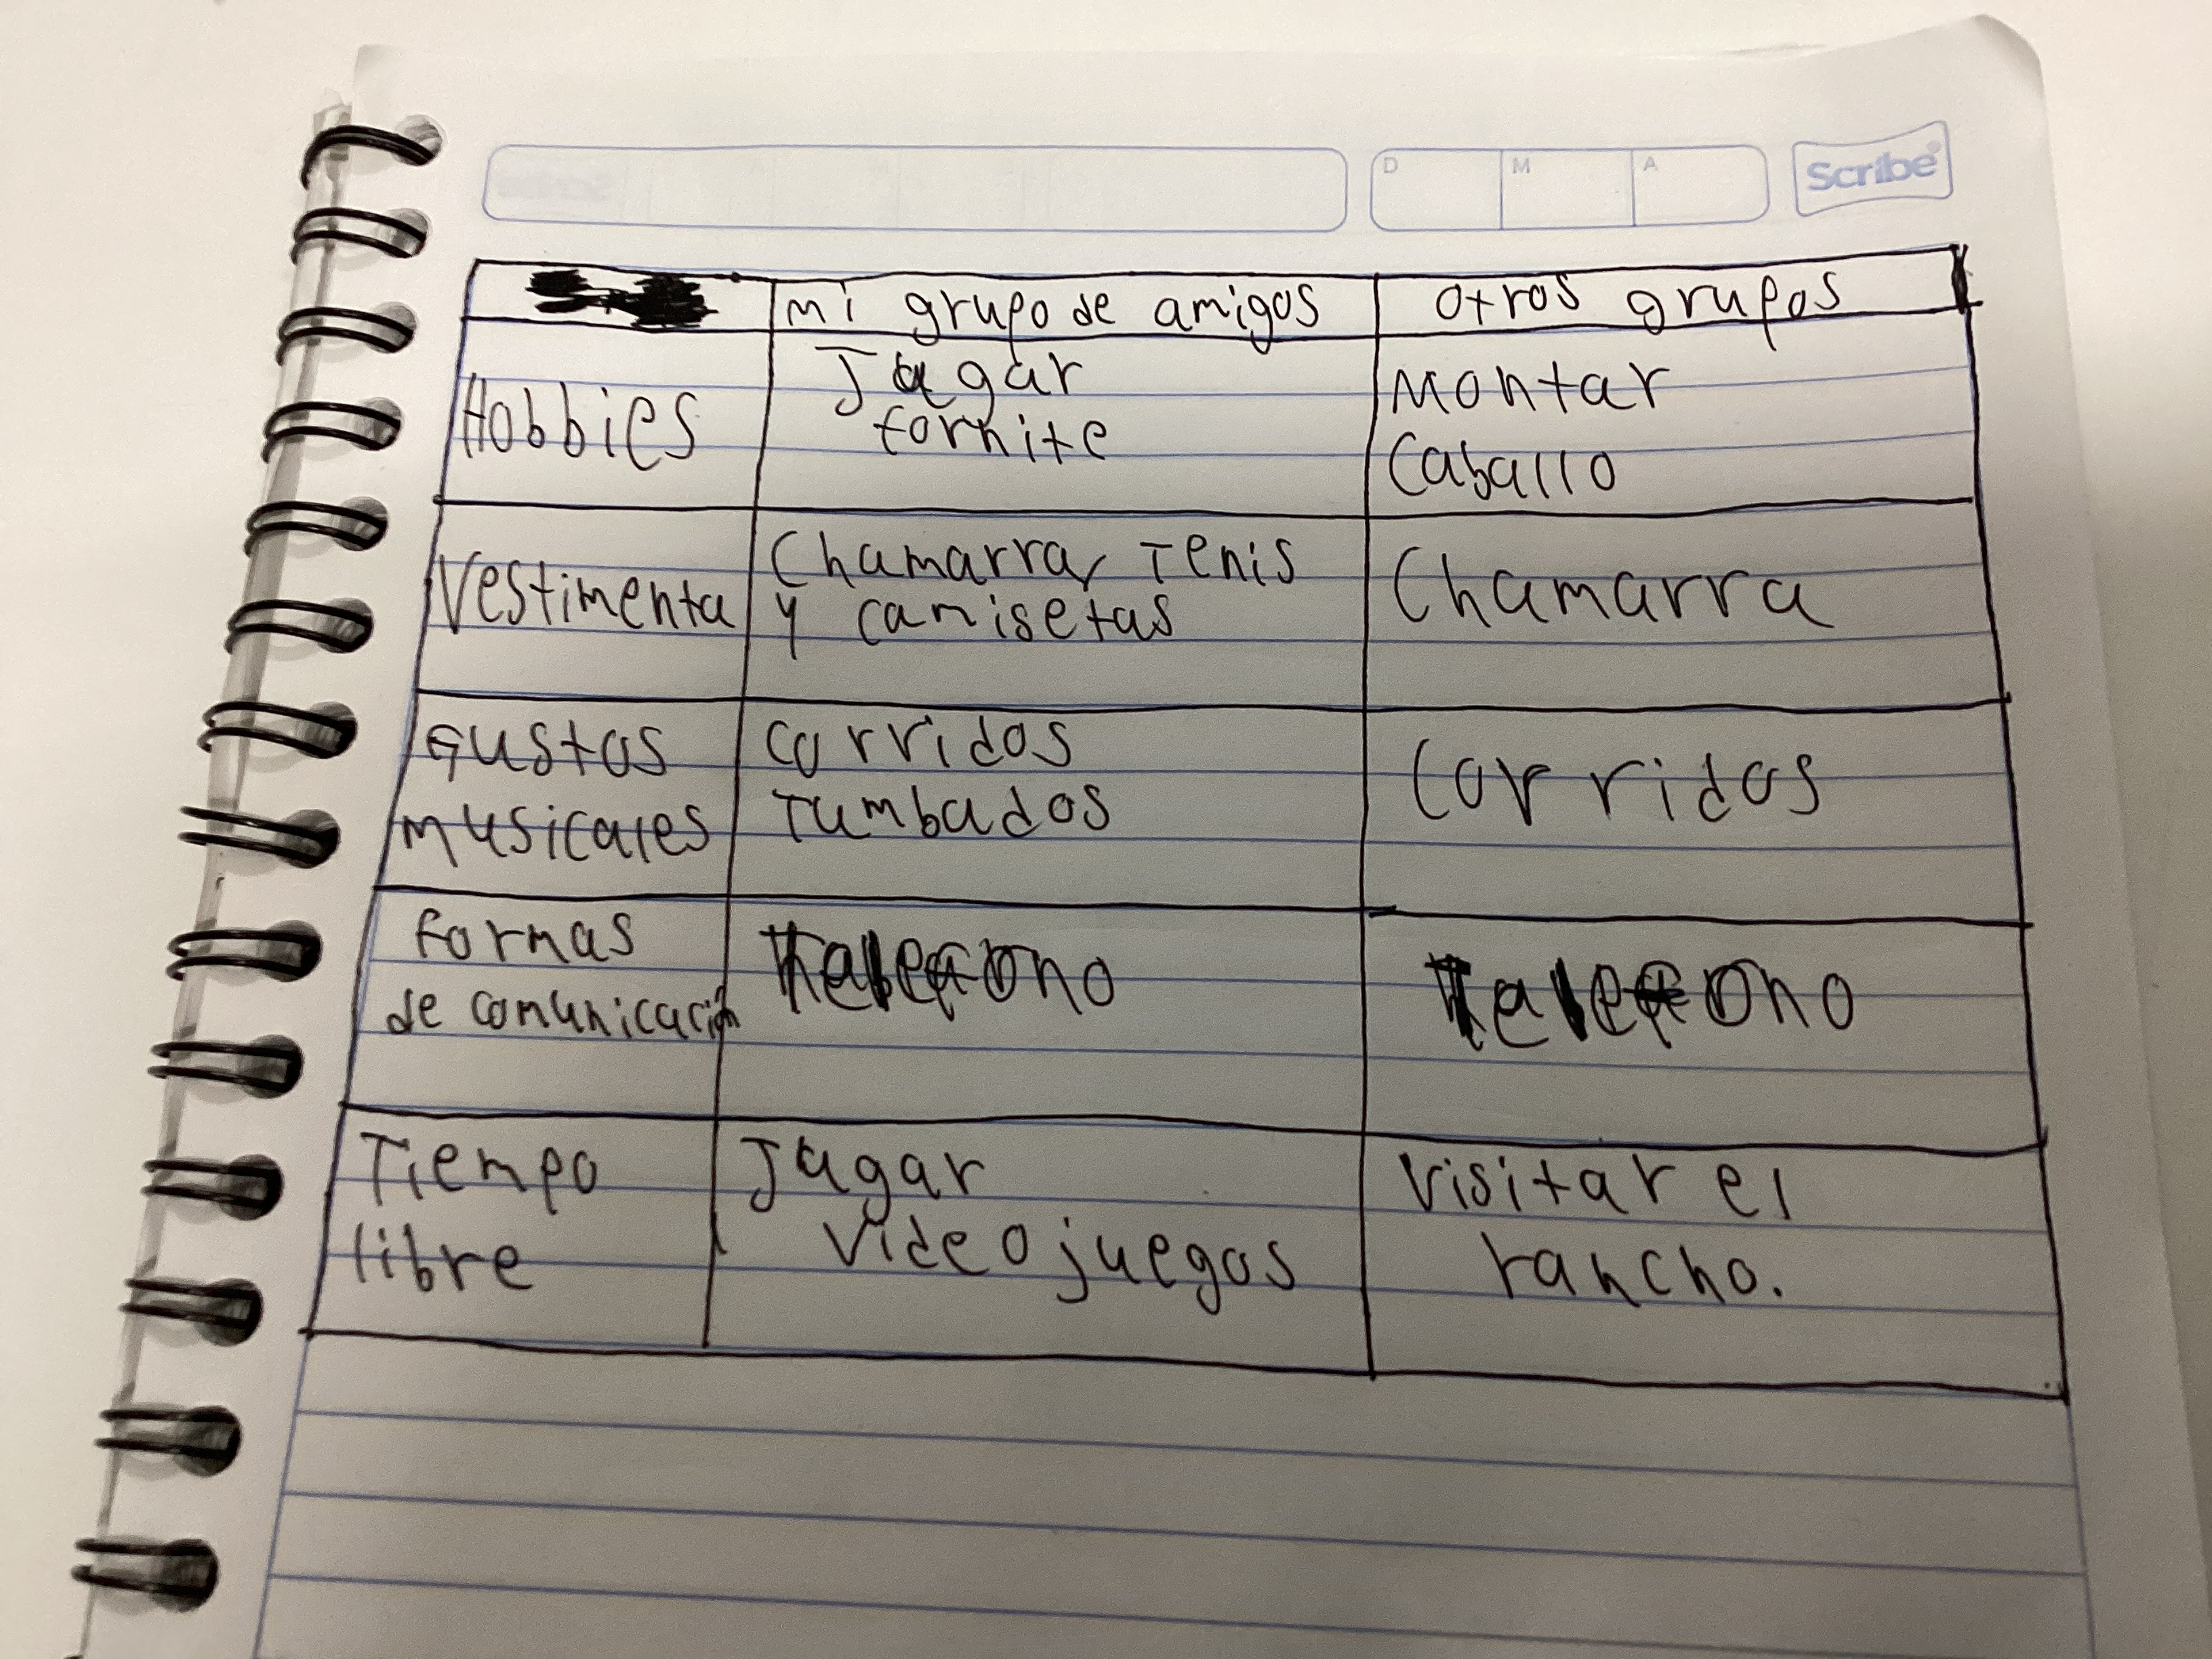 D M A Scribe
mi grupo de amigos otros grupos
Hobbies
Jugar
fornite
Montar
Caballo
Vestimenta
Chamarra, Tenis
y camisetas
Chamarra
Gustos
musicales
corridos
Tumbados
Corridos
formas
de comunicación
Telefono
Telefono
Tiempo
libre
Jugar
Videojuegos
Visitar el
rancho.